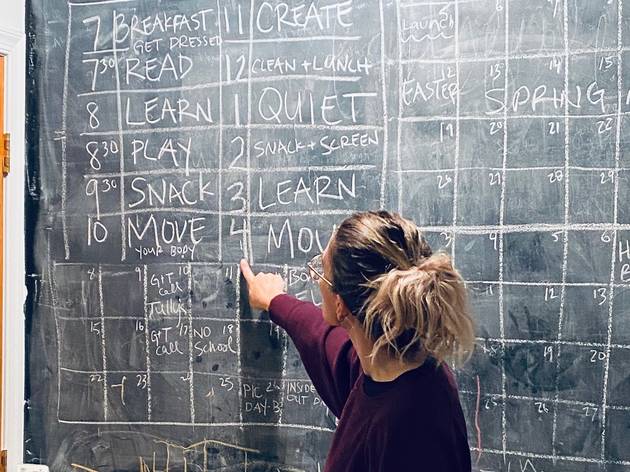 7 BREAKFAST
GET DRESSED
7 30 READ
8 LEARN
8 30 PLAY
9 30 SNACK
10 MOVE
YOUR BODY
11 CREATE
12 CLEAN + LUNCH
1 QUIET
2 SNACK + SCREEN
3 LEARN
4 MOV
8 9 10 11
G+T
call
15 16 17 18
G+T
call
NO
School
22 23 25 26
PIC
DAY-B
INSIDE
OUT
5
12 13 14 15
EASTER SPRING
19 20 21 22
28 29
4 5 6
11 12 13
19 20
25 26 27